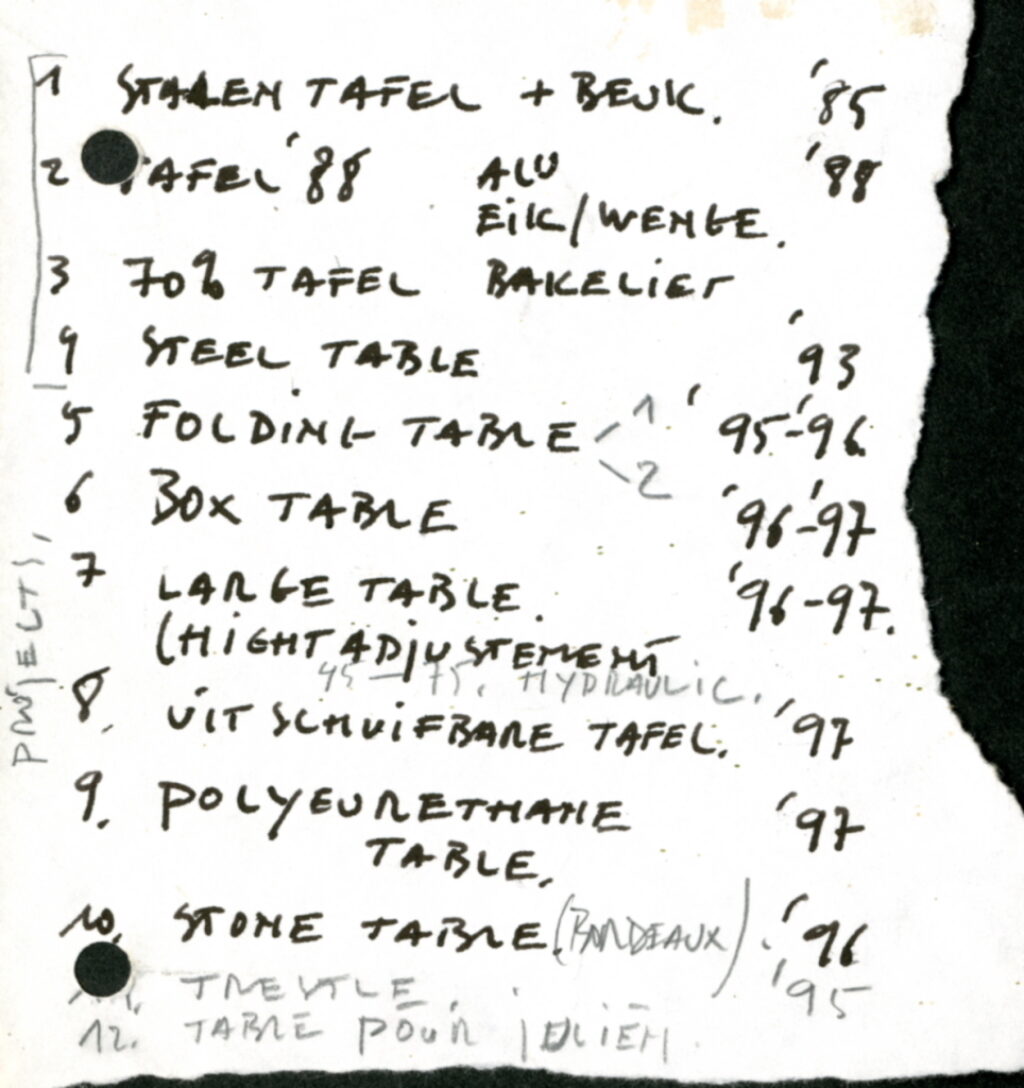 1 STALEN TAFEL + BEUK. '85
2 TAFEL '88 ALU '88
EIK/WENGE.
3 70% TAFEL BAKELIET
4 STEEL TABLE '93
5 FOLDING TABLE 1 '95-'96
2
6 BOX TABLE '96-'97
7 LARGE TABLE. '96-97.
(HIGHT ADJUSTEMENT
45-75. HYDRAULIC.
8. UITSCHUIFBARE TAFEL. '97
9. POLYEURETHANE '97
TABLE.
10. STONE TABLE. (BORDEAUX). '96
11. TRESTLE. '95
12. TABLE POUR JULIEN.
PROJECTS,